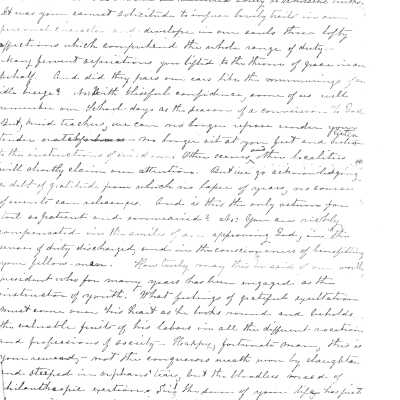 It was your earnest solicitude to impress lovely traits in our
personal character and develope in our souls those lofty
affections which comprehend the whole range of duty.
Many fervent aspirations you lifted to the throne of Grace in our
behalf. And did they pass our ears like the murmurings of an
idle breeze? No, With blissful confidence, some of us will
remember our School days as the season of a conversion to God.
But, kind teachers, we can no longer repose under your
tender no longer sit at your feet and listen
to the instructions of wisdom. Other scenes, and other localities
will silently claim our attention. But we go acknowledging
a debt of gratitude from which no lapse of years, no course
of events can release us. And is this the only return for
toil so patient and unwearied? No: You are richly
compensated in the smiles of an approving God, in the
sense of duty discharged, and in the consciousness of benefiting
your fellow-man. How truly may this be said of our worthy
president who for many years has been engaged as the
instructor of youth. What feelings of grateful exultation
must come over his heart as he looks round and beholds
the valuable fruits of his labors in all the different vocations
and professions of society. Happy, fortunate man, this is
your reward, - not the conquerors wreath won by slaughter
and steeped in orphans' tears, but the bloodless reward of
philanthropic exertions. the down of your life